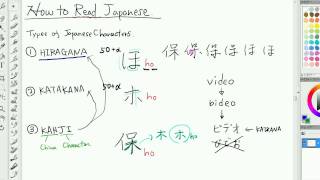 How to Read Japanese
Types of Japanese Characters
① HIRAGANA 50+α
② KATAKANA 50+α
③ KAHJI
China Character
ほ ho
ホ ho
保 ho
木 ホ ho
保 保 ほ ほ ほ ほ
video
↓
bideo
↓
ビデオ ← KATAKANA
びでお